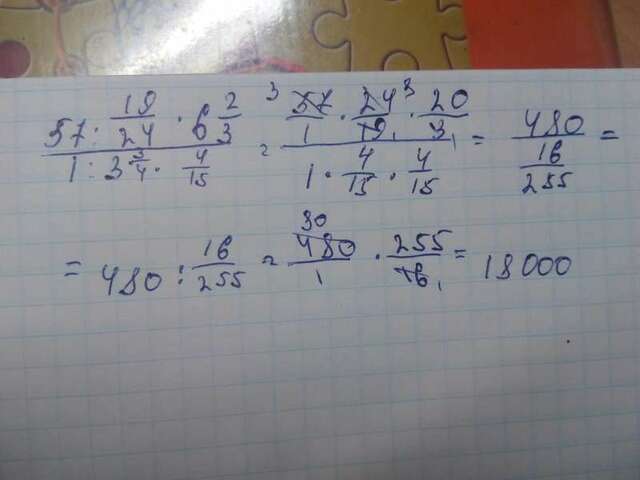 57 : 19/24 · 6 2/3 / 1 : 3 3/4 · 4/15 = 3 57/1 · 24/19 1 3 · 20/3 1 / 1 · 4/15 · 4/15 = 480 / 16/255 =
= 480 : 16/255 = 30 480/1 · 255/16 1 = 18000